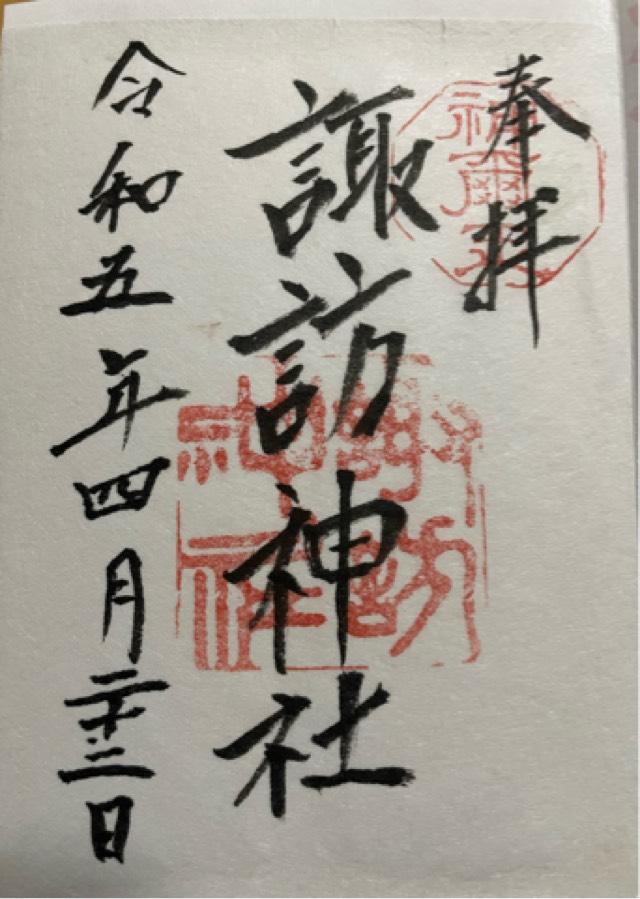 奉拝
諏訪神社
諏訪神社
令和五年四月二十三日